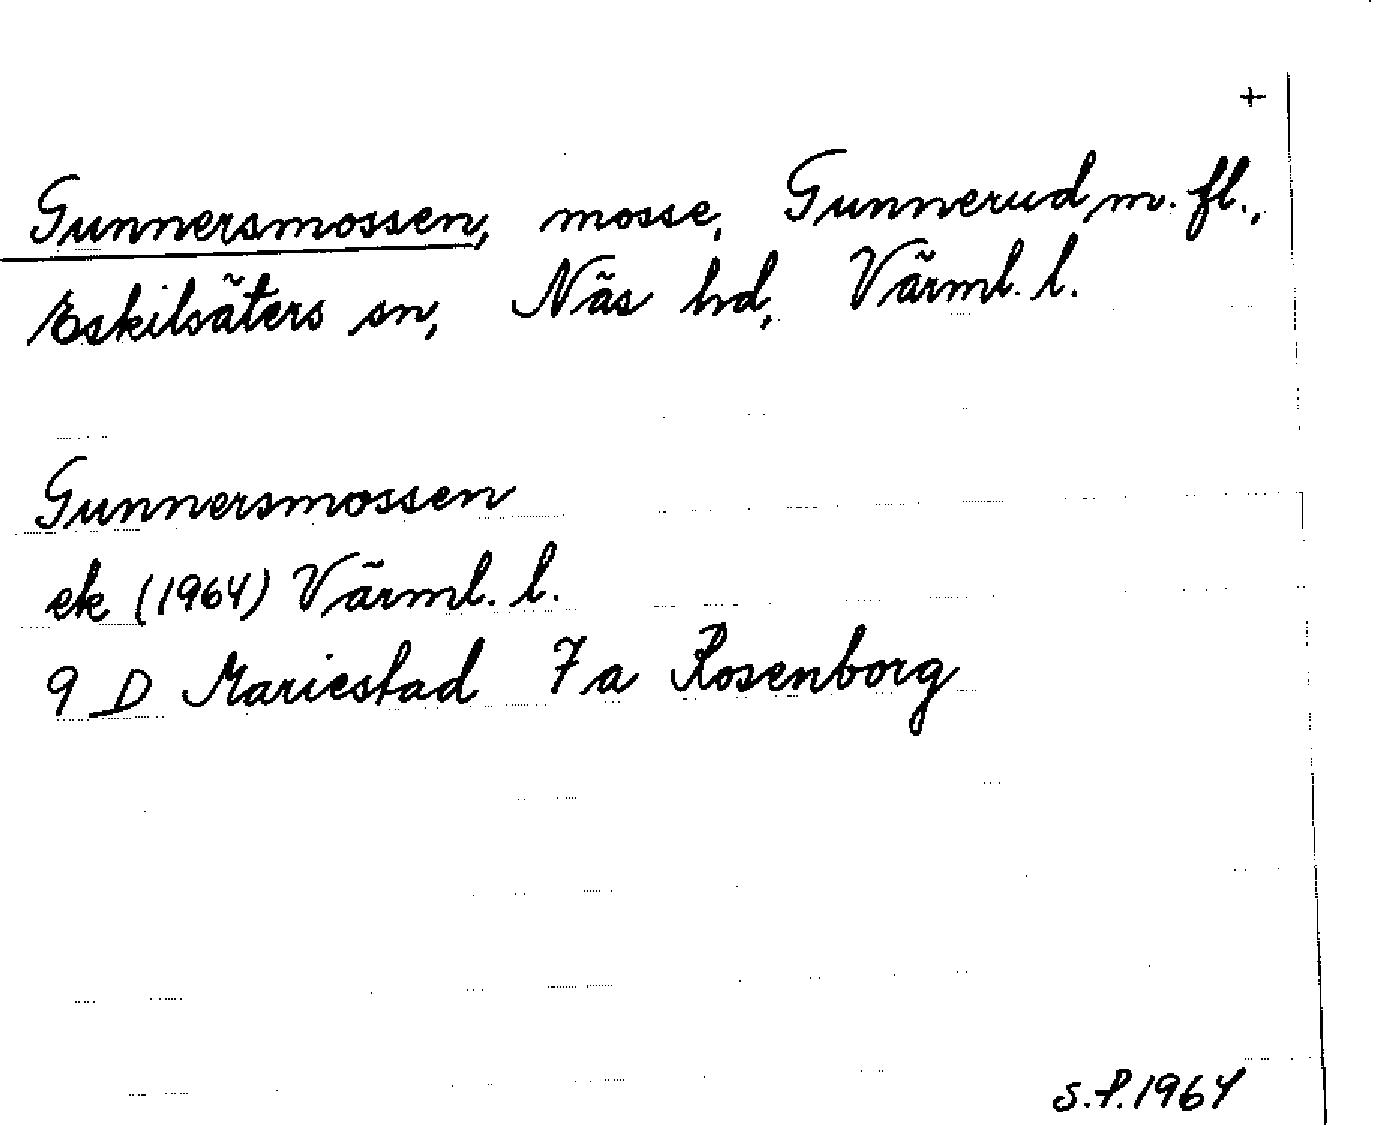 +
Gunnersmossen, mosse, Gunnerud m. fl.,
Eskilsäters sn, Näs hd, Värml. l.
Gunnersmossen
ek (1964) Värml. l.
9 D Mariestad 7 a Rosenborg
S.P. 1964